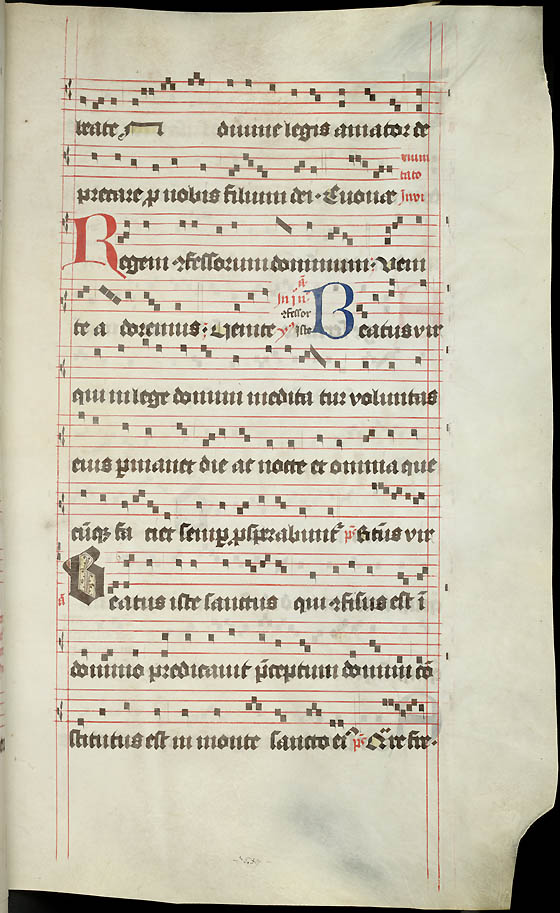 beate divine legis amator de
precare p nobis filium dei · Euouae
Regem ↄfessorum dominum · Veni
te a doremus : Venite Beatus vir
qui in lege domini medita tur voluntas
eius pmanet die ac nocte et omnia que
cūqȝ fa ciet semp psperabuntr ps Beatus vir
Beatus iste sanctus qui ↄfisus est ī
domino predicavit p̄ceptum domini cō
stitutus est in monte sancto eiꝰ ps